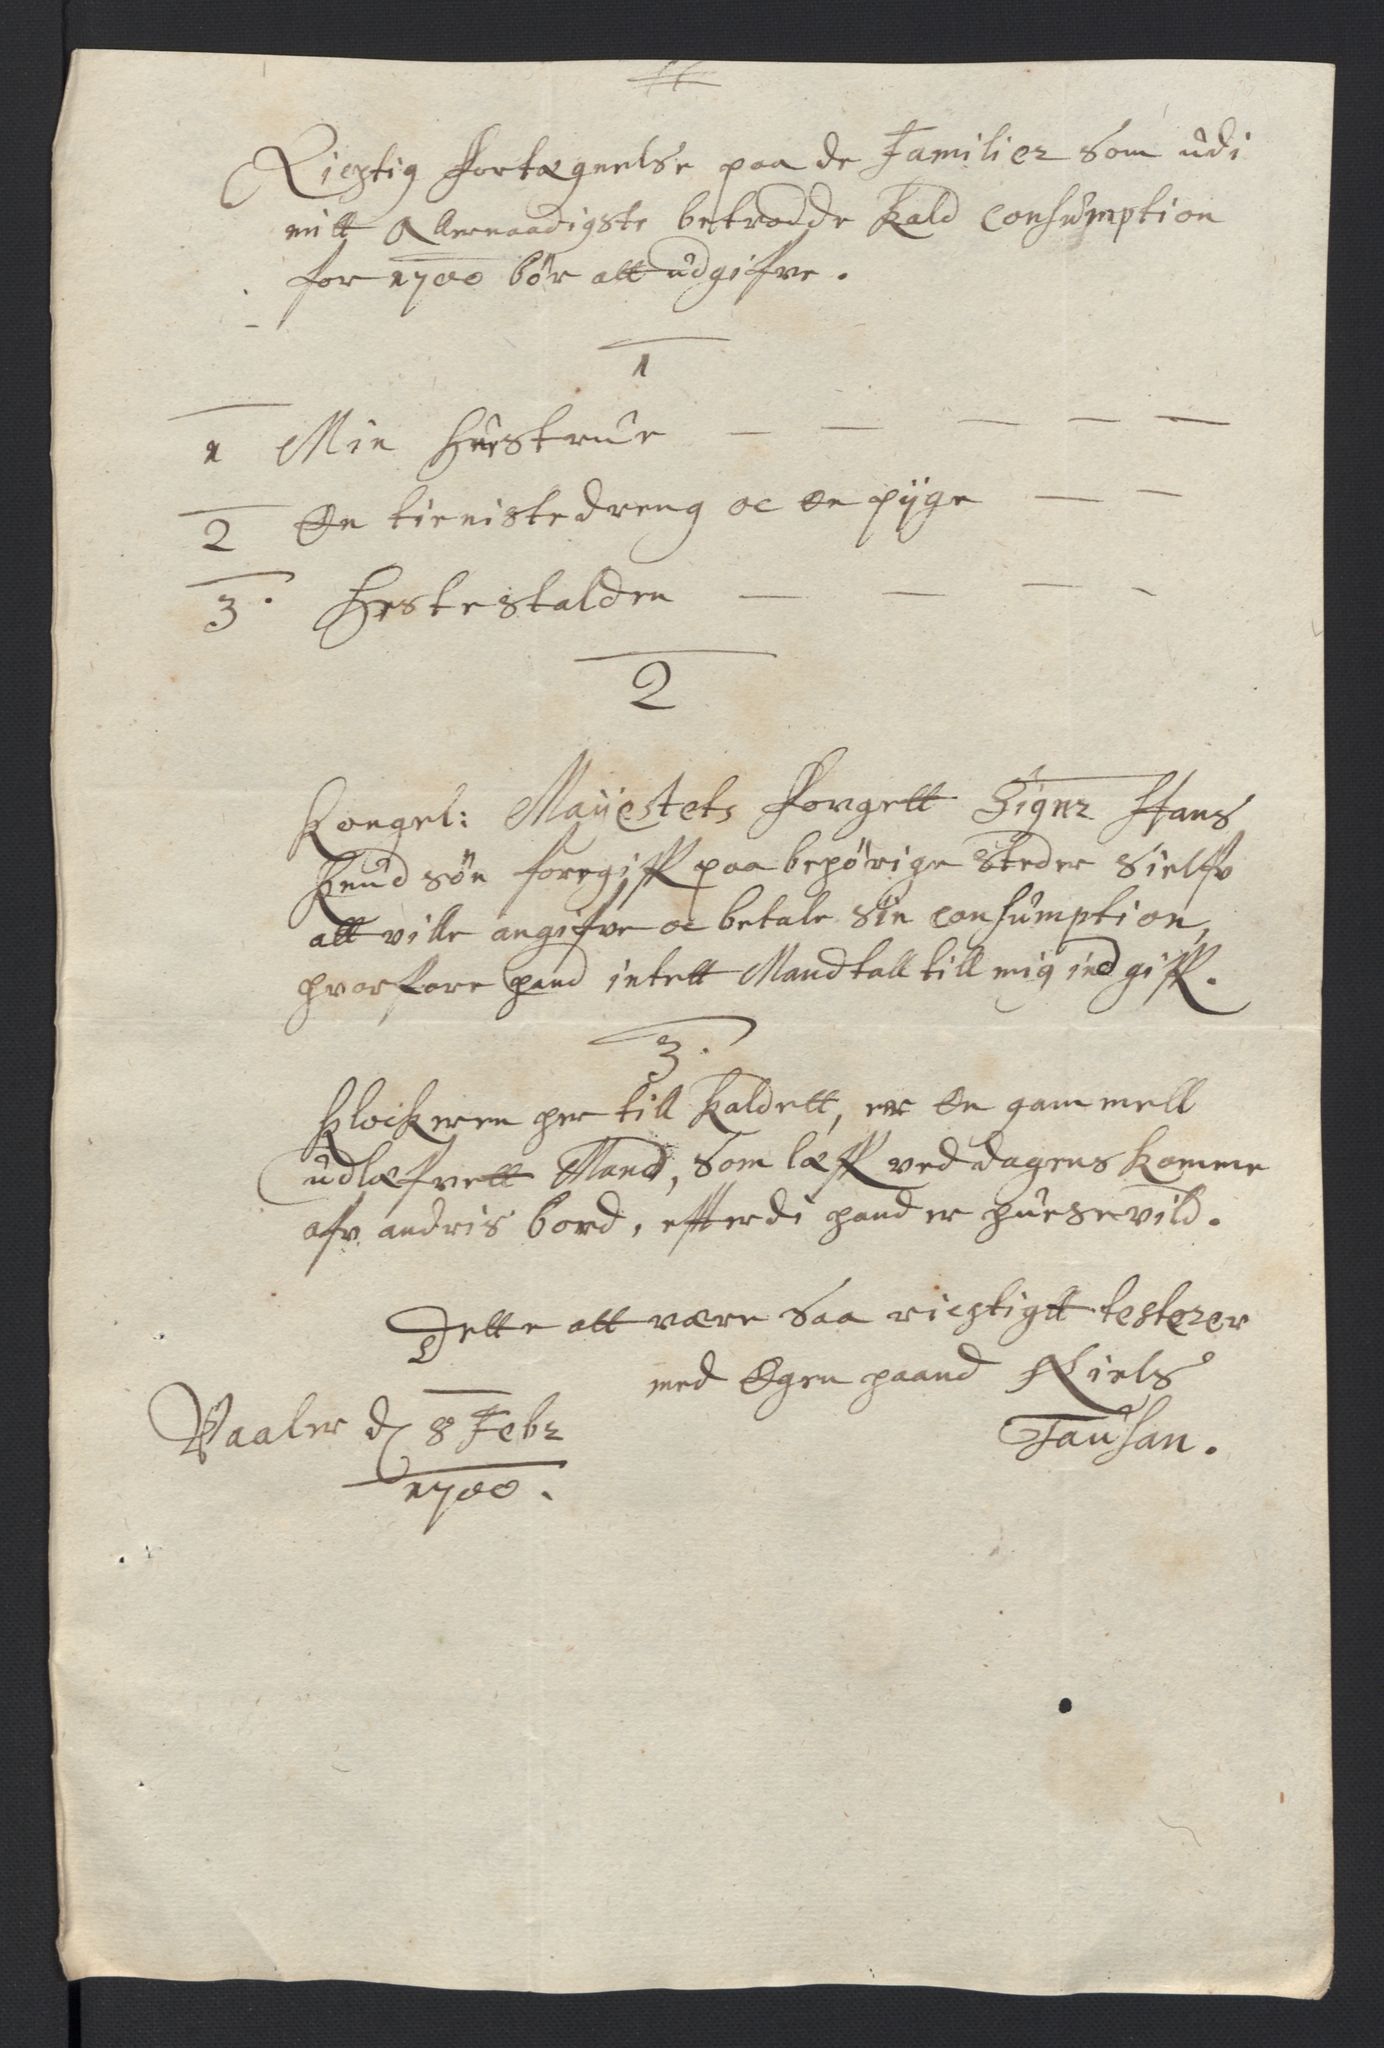 Richtig fortægnelse paa de Familier som udi
mitt Allernaadigste betrodde Kald Consumption
for 1700 bør att udgifve.
1
1 Min Hustrue
2 En tienistedreng oc En pijge
3. Hestestalden
2
Kongel: Mayestets Fougett Signr Hans
Knudsøn foregiff paa behørige steder sielfv
att ville angifve oc betale sin Consumption,
hvorfore hand intett Mandtall till mig indgiff.
3.
Klockeren her till Kaldett, er En gammell
udlæfvett Mand, som læff ved dagens komme
afv andris bord, efterdi hand er huusevild.
Dette att være saa richtigtt testerer
med Egen haand Niels
Tausan.
Vaaler d 8 Febr
1700.